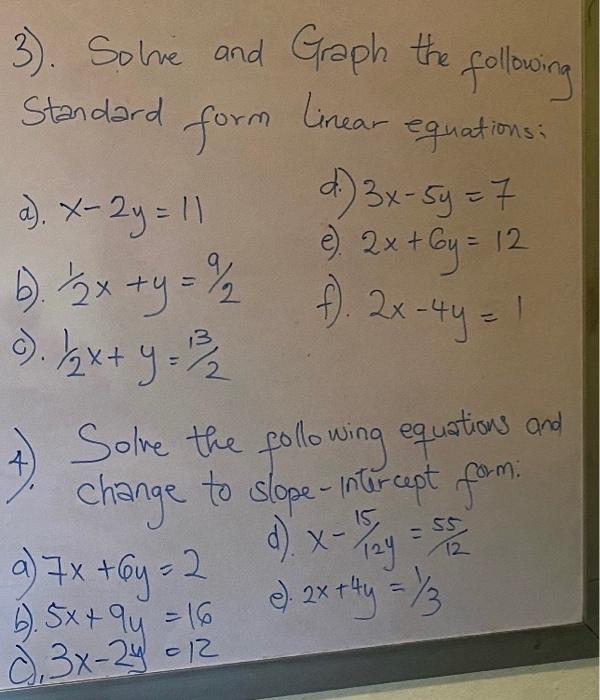 3). Solve and Graph the following
Standard form linear equations:
a). x - 2y = 11
b). 1/2x + y = 9/2
c). 1/2x + y = 13/2
d) 3x - 5y = 7
e). 2x + 6y = 12
f). 2x - 4y = 1
4). Solve the following equations and
change to slope-intercept form:
a) 7x + 6y = 2
b). 5x + 9y = 16
c). 3x - 2y = 12
d). x - 15/12y = 55/12
e). 2x + 4y = 1/3